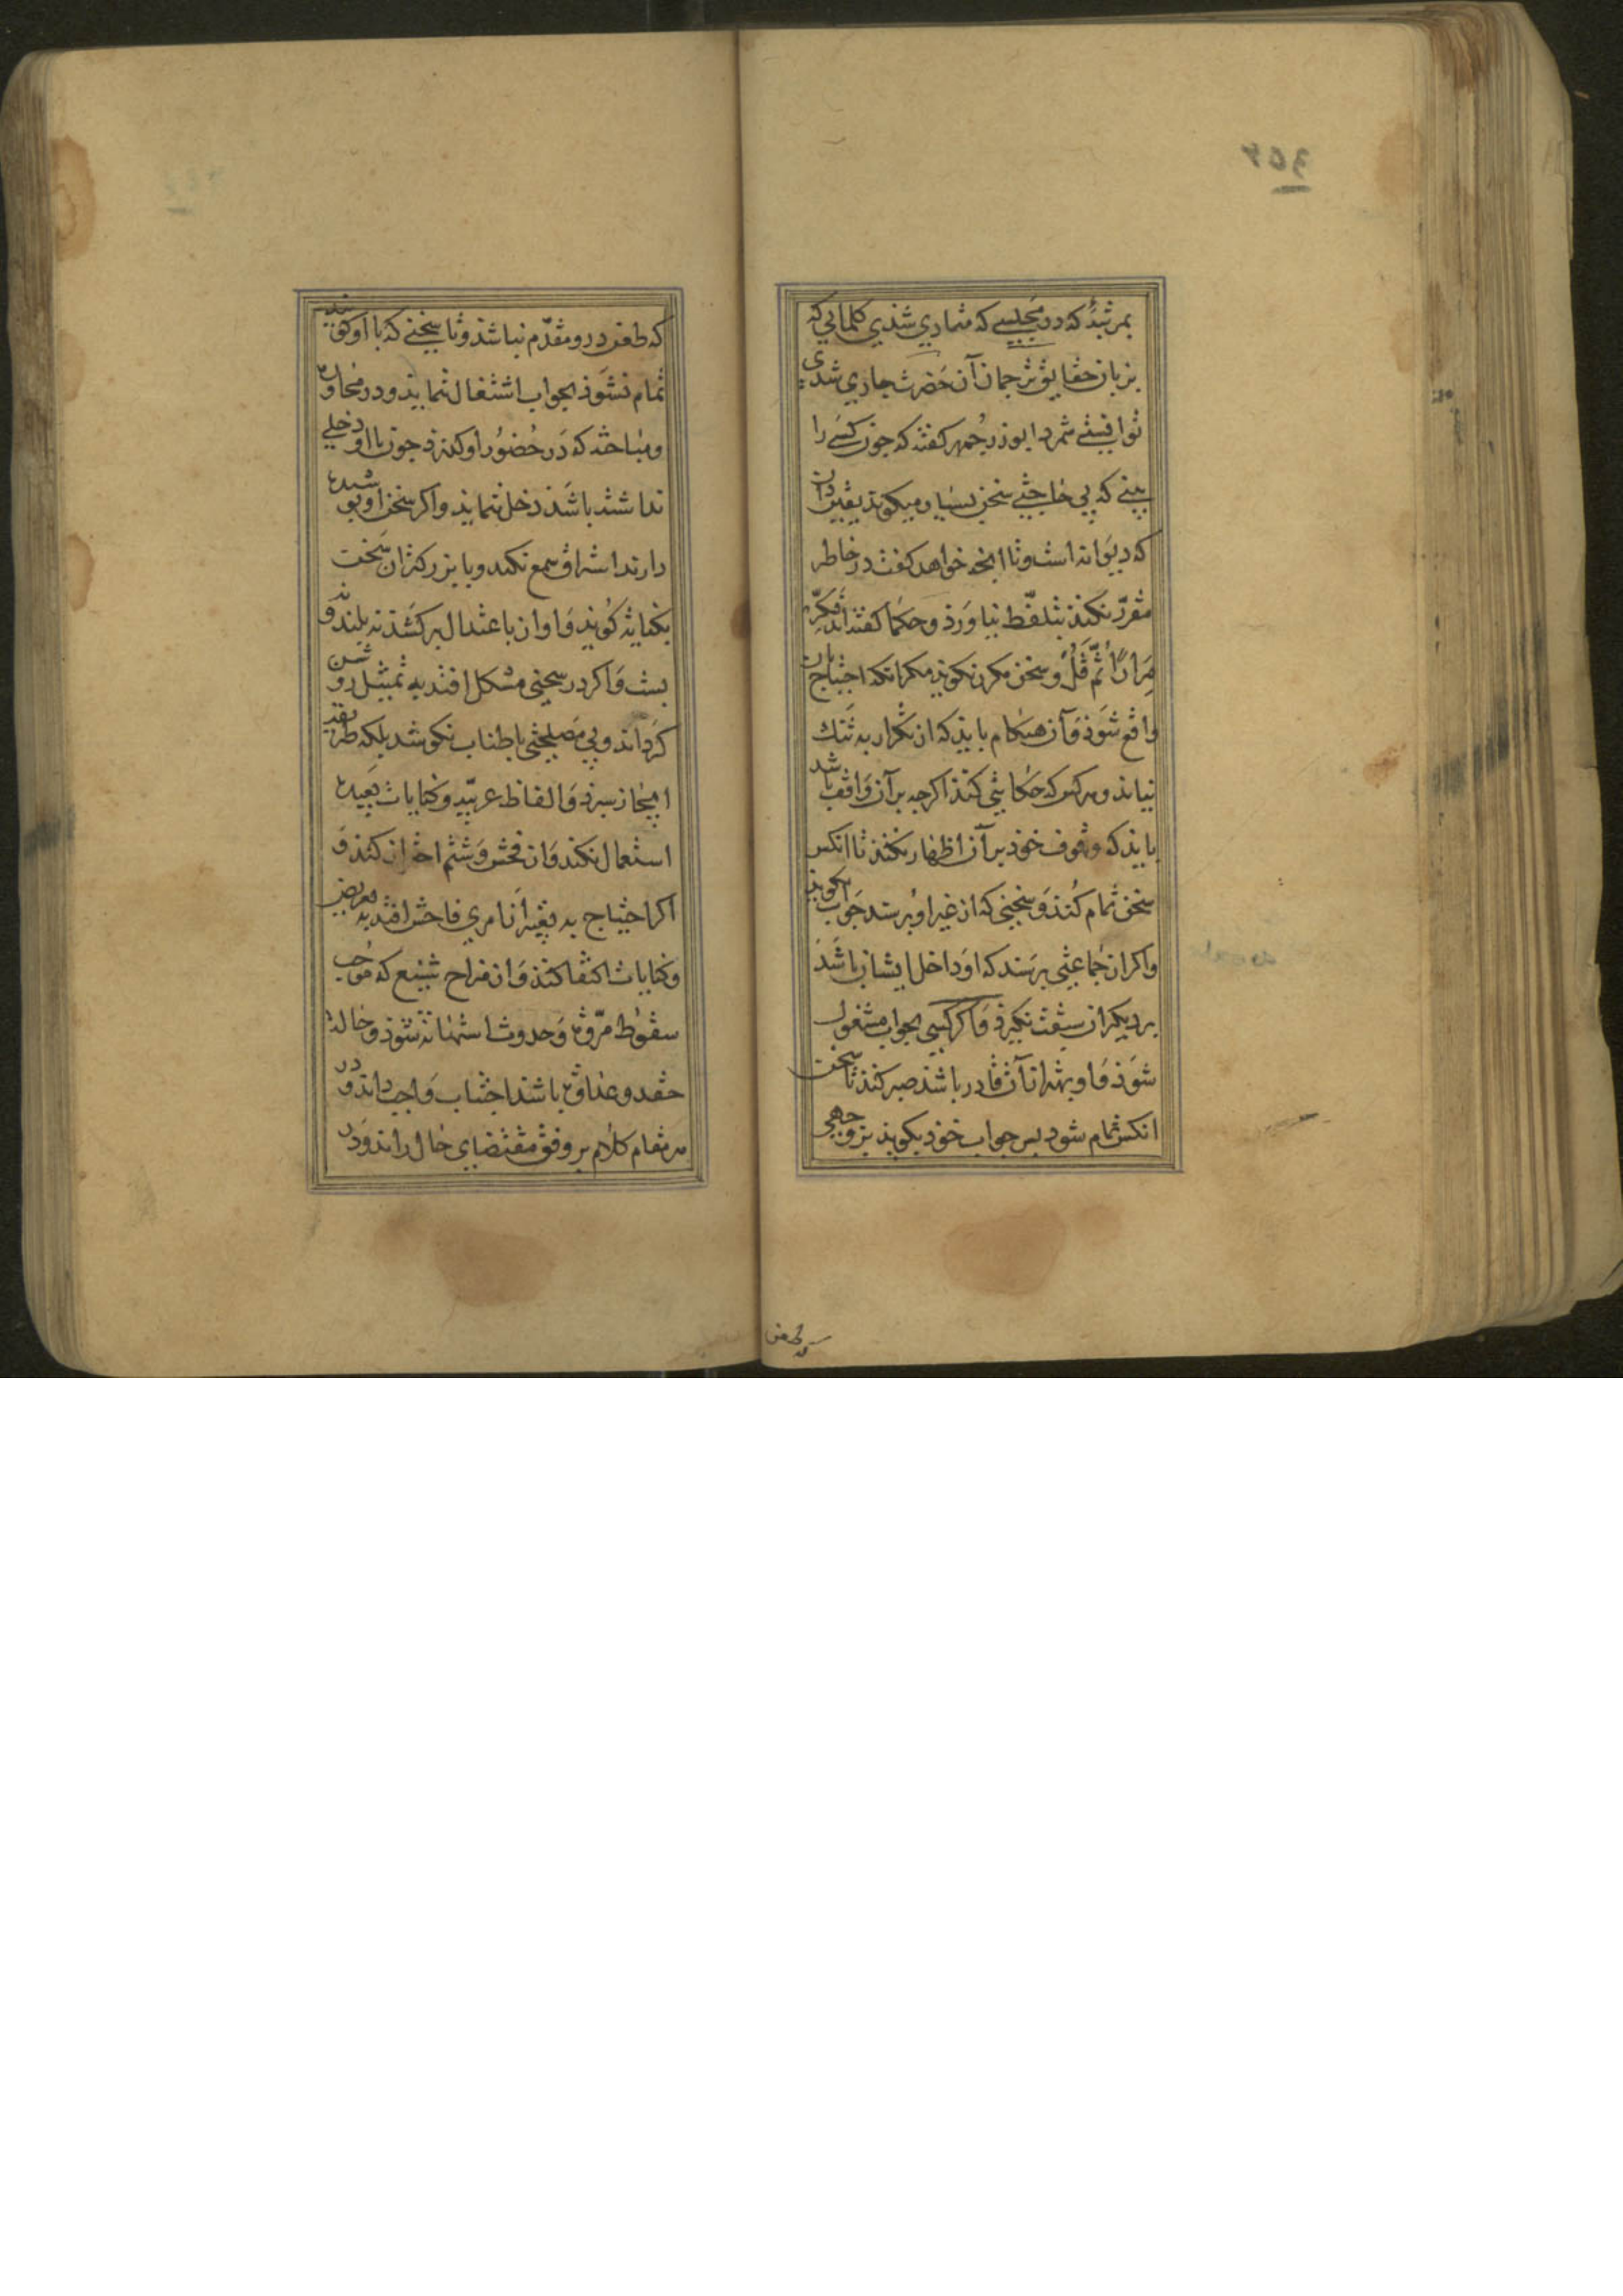 بمرتبهٔ که در مجلسی که متمادی شدی کلماتی که
بزبان حقایق ترجمان آن حضرت جاری شدی
توانستی شمرد ابوذرجمهر کفته که جون کسی را
بینی که بی حاجتی سخن بسیار میکوید یقین دان
که دیوانه است و تا انجه خواهد کفت در خاطر
مقرر نکند بتلفظ نیاورد و حکما کفته اند فکّر
مرارًا ثمّ قُل و سخن مکرر نکوید مکر انکه احتیاج بان
واقع شود و آن هنکام باید که از تکرار به تنک
نیاید و هرکس که حکایتی کند اکرجه بر آن واقف باشد
باید که وقوف خود بر آن اظهار نکند تا انکس
سخن تمام کند و سخنی که از غیر او پرسند جواب نکوید
و اکر از جماعتی پرسند که او داخل ایشان باشد
بر دیکران سبقت نکیرد و اکر کسی بجواب مشغول
شود و او بهتر از آن قادر باشد صبر کند تا سخن
انکس تمام شود پس جواب خود بکوید بر وجهی
که طعن در و مقدّم نباشد و تا سخنی که با او کویند
تمام نشود بجواب اشتغال ننماید و در محاوره
و مباحثه که در حضور او کذرد جون با او دخلی
نداشته باشد دخل ننماید و اکر سخن ازو پوشیده
دارند استراق سمع نکند و با بزرکتران سخن
بکنایه کوید و اواز باعتدال برکشد نه بلند و نه
پست و اکر در سخنی مشکل افتد به تمثیل روشن
کرداند و بی مصلحتی باطناب نکوشد بلکه طریقه
ایجاز سپرد و الفاظ غریبه و کنایات بعیده
استعمال نکند و از فحش و شتم احتراز کند و
اکر احتیاج به تعبیر از امری فاحش افتد به تعریض
و کنایات اکتفا کند و از مزاح شنیع که موجب
سقوط مرّوة و حدوث استهانه شود و جالب
حقد و عداوة باشد اجتناب واجب داند و در
هر مقام کلام بر وفق مقتضای حال راند و در
که طعن